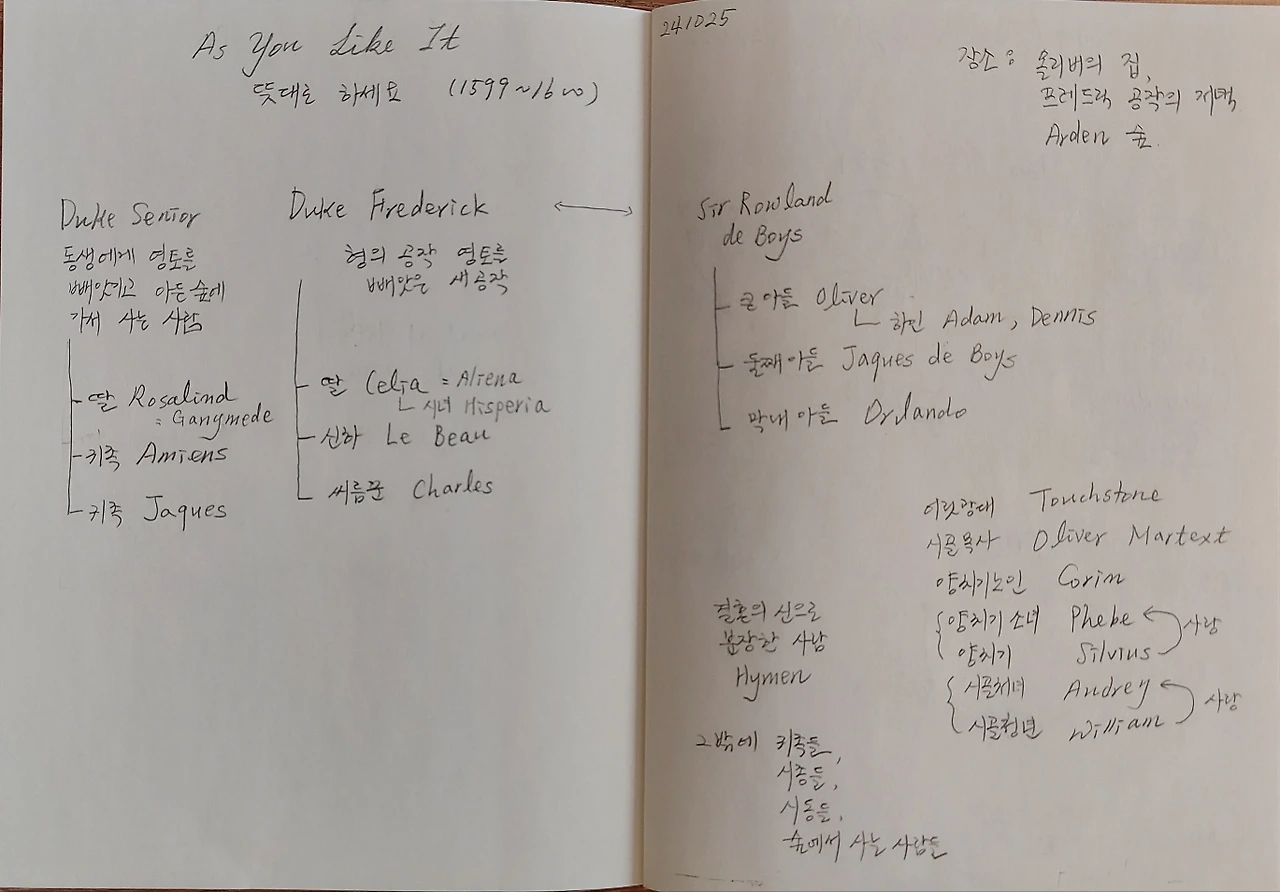 As You Like It
뜻대로 하세요 (1599~1600)
Duke Senior
동생에게 영토를
빼앗기고 아든숲에
가서 사는 사람
딸 Rosalind
= Ganymede
귀족 Amiens
귀족 Jaques
Duke Frederick
형의 공작 영토를
빼앗은 새공작
딸 Celia = Aliena
시녀 Hisperia
신하 Le Beau
씨름꾼 Charles
241025
장소: 올리버의 집,
프레드릭 공작의 저택
Arden 숲.
Sir Rowland
de Boys
큰아들 Oliver
하인 Adam, Dennis
둘째아들 Jaques de Boys
막내아들 Orlando
어릿광대 Touchstone
시골목사 Oliver Martext
양치기노인 Corin
양치기소녀 Phebe
양치기 Silvius
사랑
시골처녀 Audrey
시골청년 William
사랑
결혼의 신으로
분장한 사람
Hymen
그밖에 귀족들,
시종들,
시동들,
숲에서 사는 사람들